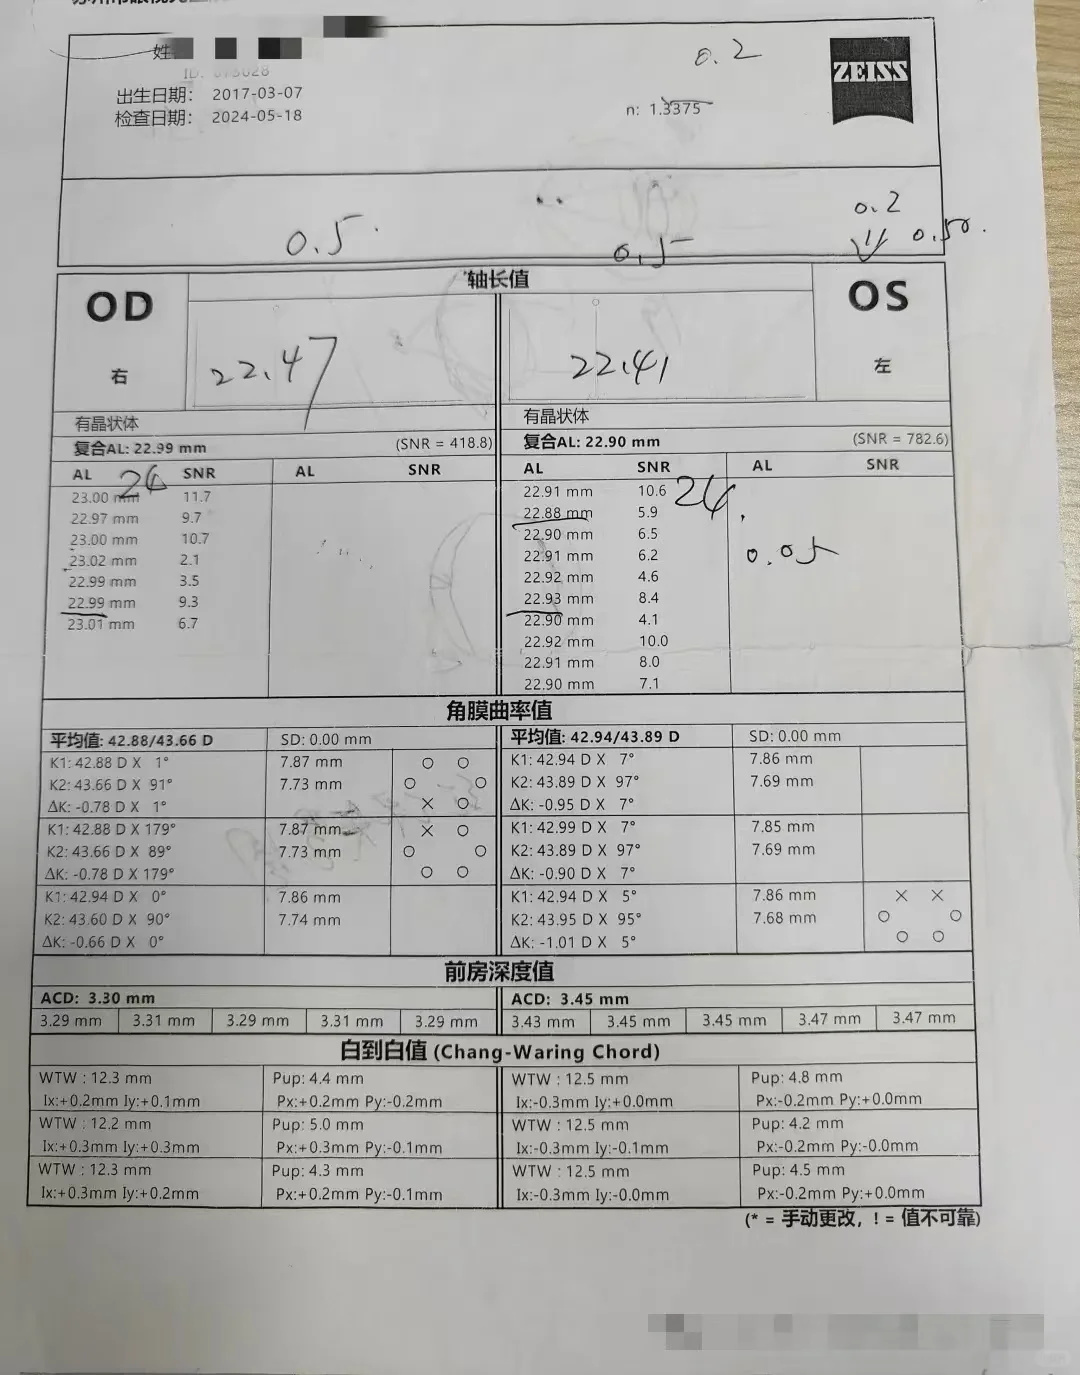 姓
0.2
ZEISS
出生日期: 2017-03-07
检查日期: 2024-05-18
n: 1.3375
0.5
0.5
0.2
0.50
轴长值
OD
右
22.47
22.41
OS
左
有晶状体
有晶状体
复合AL: 22.99 mm (SNR = 418.8)
复合AL: 22.90 mm (SNR = 782.6)
AL SNR AL SNR
AL SNR AL SNR
24
24
0.05
23.00 mm 11.7
22.97 mm 9.7
23.00 mm 10.7
23.02 mm 2.1
22.99 mm 3.5
22.99 mm 9.3
23.01 mm 6.7
22.91 mm 10.6
22.88 mm 5.9
22.90 mm 6.5
22.91 mm 6.2
22.92 mm 4.6
22.93 mm 8.4
22.90 mm 4.1
22.92 mm 10.0
22.91 mm 8.0
22.90 mm 7.1
角膜曲率值
平均值: 42.88/43.66 D SD: 0.00 mm
K1: 42.88 D X 1° 7.87 mm
K2: 43.66 D X 91° 7.73 mm
ΔK: -0.78 D X 1°
K1: 42.88 D X 179° 7.87 mm
K2: 43.66 D X 89° 7.73 mm
ΔK: -0.78 D X 179°
K1: 42.94 D X 0° 7.86 mm
K2: 43.60 D X 90° 7.74 mm
ΔK: -0.66 D X 0°
平均值: 42.94/43.89 D SD: 0.00 mm
K1: 42.94 D X 7° 7.86 mm
K2: 43.89 D X 97° 7.69 mm
ΔK: -0.95 D X 7°
K1: 42.99 D X 7° 7.85 mm
K2: 43.89 D X 97° 7.69 mm
ΔK: -0.90 D X 7°
K1: 42.94 D X 5° 7.86 mm
K2: 43.95 D X 95° 7.68 mm
ΔK: -1.01 D X 5°
前房深度值
ACD: 3.30 mm
3.29 mm 3.31 mm 3.29 mm 3.31 mm 3.29 mm
ACD: 3.45 mm
3.43 mm 3.45 mm 3.45 mm 3.47 mm 3.47 mm
白到白值 (Chang-Waring Chord)
WTW : 12.3 mm Pup: 4.4 mm
Ix:+0.2mm Iy:+0.1mm Px:+0.2mm Py:-0.2mm
WTW : 12.2 mm Pup: 5.0 mm
Ix:+0.3mm Iy:+0.3mm Px:+0.3mm Py:-0.1mm
WTW : 12.3 mm Pup: 4.3 mm
Ix:+0.3mm Iy:+0.2mm Px:+0.2mm Py:-0.1mm
WTW : 12.5 mm Pup: 4.8 mm
Ix:-0.3mm Iy:+0.0mm Px:-0.2mm Py:+0.0mm
WTW : 12.5 mm Pup: 4.2 mm
Ix:-0.3mm Iy:-0.1mm Px:-0.2mm Py:-0.0mm
WTW : 12.5 mm Pup: 4.5 mm
Ix:-0.3mm Iy:-0.0mm Px:-0.2mm Py:+0.0mm
(* = 手动更改, ! = 值不可靠)